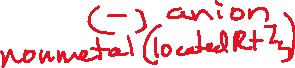 (-) anion
nonmetal (located Rt Zz)